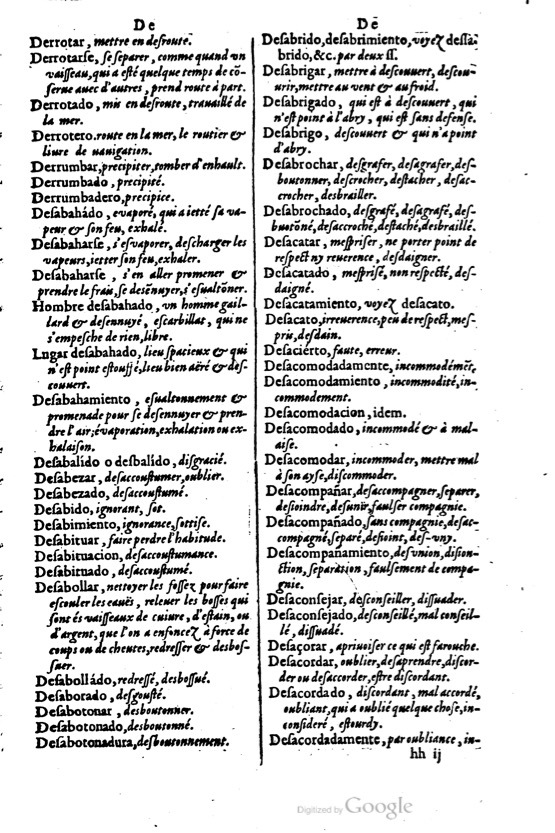 De
Derrotar, mettre en desroute.
Derrotarſe, ſe ſeparer, comme quand vn
vaiſſeau, qui a eſté quelque temps de cō-
ſerue auec d'autres, prend route à part.
Derrotado, mis en deſroute, trauaillé de
la mer.
Derrotero. route en la mer, le routier &
liure de nauigation.
Derrumbar, precipiter, tomber d'enhault.
Derrumbado, precipité.
Derrumbadero, precipice.
Deſabahádo, euaporé, qui a ietté ſa va-
peur & ſon feu, exhalé.
Deſabaharſe, s'eſvaporer, deſcharger les
vapeurs, ietter ſon feu, exhaler.
Deſabaharſe, s'en aller promener &
prendre le frais, ſe deſēnuyer, s'eſualtōner.
Hombre deſabahado, vn homme gail-
lard & deſennuyé, eſcarbillat, qui ne
s'empeſche de rien, libre.
Lugar deſabahado, lieu ſpacieux & qui
n'eſt point eſtouffé, lieu bien aëré & deſ-
couuert.
Deſabahamiento, eſualtonnement &
promenade pour ſe deſennuyer & pren-
dre l'air; éuaporation, exhalation ou ex-
halaiſon.
Deſabalído o deſbalído, diſgracié.
Deſabezar, deſaccouſtumer, oublier.
Deſabezado, deſaccouſtumé.
Deſabido, ignorant, ſot.
Deſabimiento, ignorance, ſottiſe.
Deſabituar, faire perdre l'habitude.
Deſabituacion, deſaccouſtumance.
Deſabituado, deſaccouſtumé.
Deſabollar, nettoyer les foſſez pour faire
eſcouler les eauës, releuer les boſſes qui
ſont és vaiſſeaux de cuiure, d'eſtain, ou
d'argent, que l'on a enfoncez à force de
coups ou de cheutes, redreſſer & desboſ-
ſuer.
Deſabolládo, redreſſé, desboſſué.
Deſaborado, deſgouſté.
Deſabotonar, desboutonner.
Deſabotonado, desboutonné.
Deſabotonadura, desboutonnement.
Dē
Deſabrido, deſabrimiento, voyez deſſa-
brido, &c. par deux ſſ.
Deſabrigar, mettre à deſcouuert, deſcou-
urir, mettre au vent & au froid.
Deſabrigado, qui eſt à deſcouuert, qui
n'eſt point à l'abry, qui eſt ſans defenſe.
Deſabrigo, deſcouuert & qui n'a point
d'abry.
Deſabrochar, deſgrafer, deſagrafer, deſ-
boutonner, deſcrocher, deſtacher, deſac-
crocher, desbrailler.
Deſabrochado, deſgrafé, deſagrafé, deſ-
butōné, deſaccroché, deſtaché, desbraillé.
Deſacatar, meſpriſer, ne porter point de
reſpect ny reuerence, deſdaigner.
Deſacatado, meſpriſé, non reſpecté, deſ-
daigné.
Deſacatamiento, voyez deſacato.
Deſacato, irreuerence, peu de reſpect, meſ-
pris, deſdain.
Deſaciérto, faute, erreur.
Deſacomodadamente, incommodémēt.
Deſacomodamiento, incommodité, in-
commodement.
Deſacomodacion, idem.
Deſacomodado, incommodé & à mal-
aiſe.
Deſacomodar, incommoder, mettre mal
à ſon ayſe, diſcommoder.
Deſacompañar, deſaccompagner, ſeparer,
desioindre, deſunir, faulſer compagnie.
Deſacompañado, ſans compagnie, deſac-
compagné, ſeparé, desioint, deſ-vny.
Deſacompañamiento, deſvnion, dision-
ction, ſeparation, faulſement de compa-
gnie.
Deſaconſejar, deſconſeiller, diſſuader.
Deſaconſejado, deſconſeillé, mal conſeil-
lé, diſſuadé.
Deſaçorar, apriuoiſer ce qui eſt farouche.
Deſacordar, oublier, deſaprendre, diſcor-
der ou deſaccorder, eſtre diſcordant.
Deſacordado, diſcordant, mal accordé,
oubliant, qui a oublié quelque choſe, in-
conſideré, eſtourdy.
Deſacordadamente, par oubliance, in-
hh ij
Digitized by Google